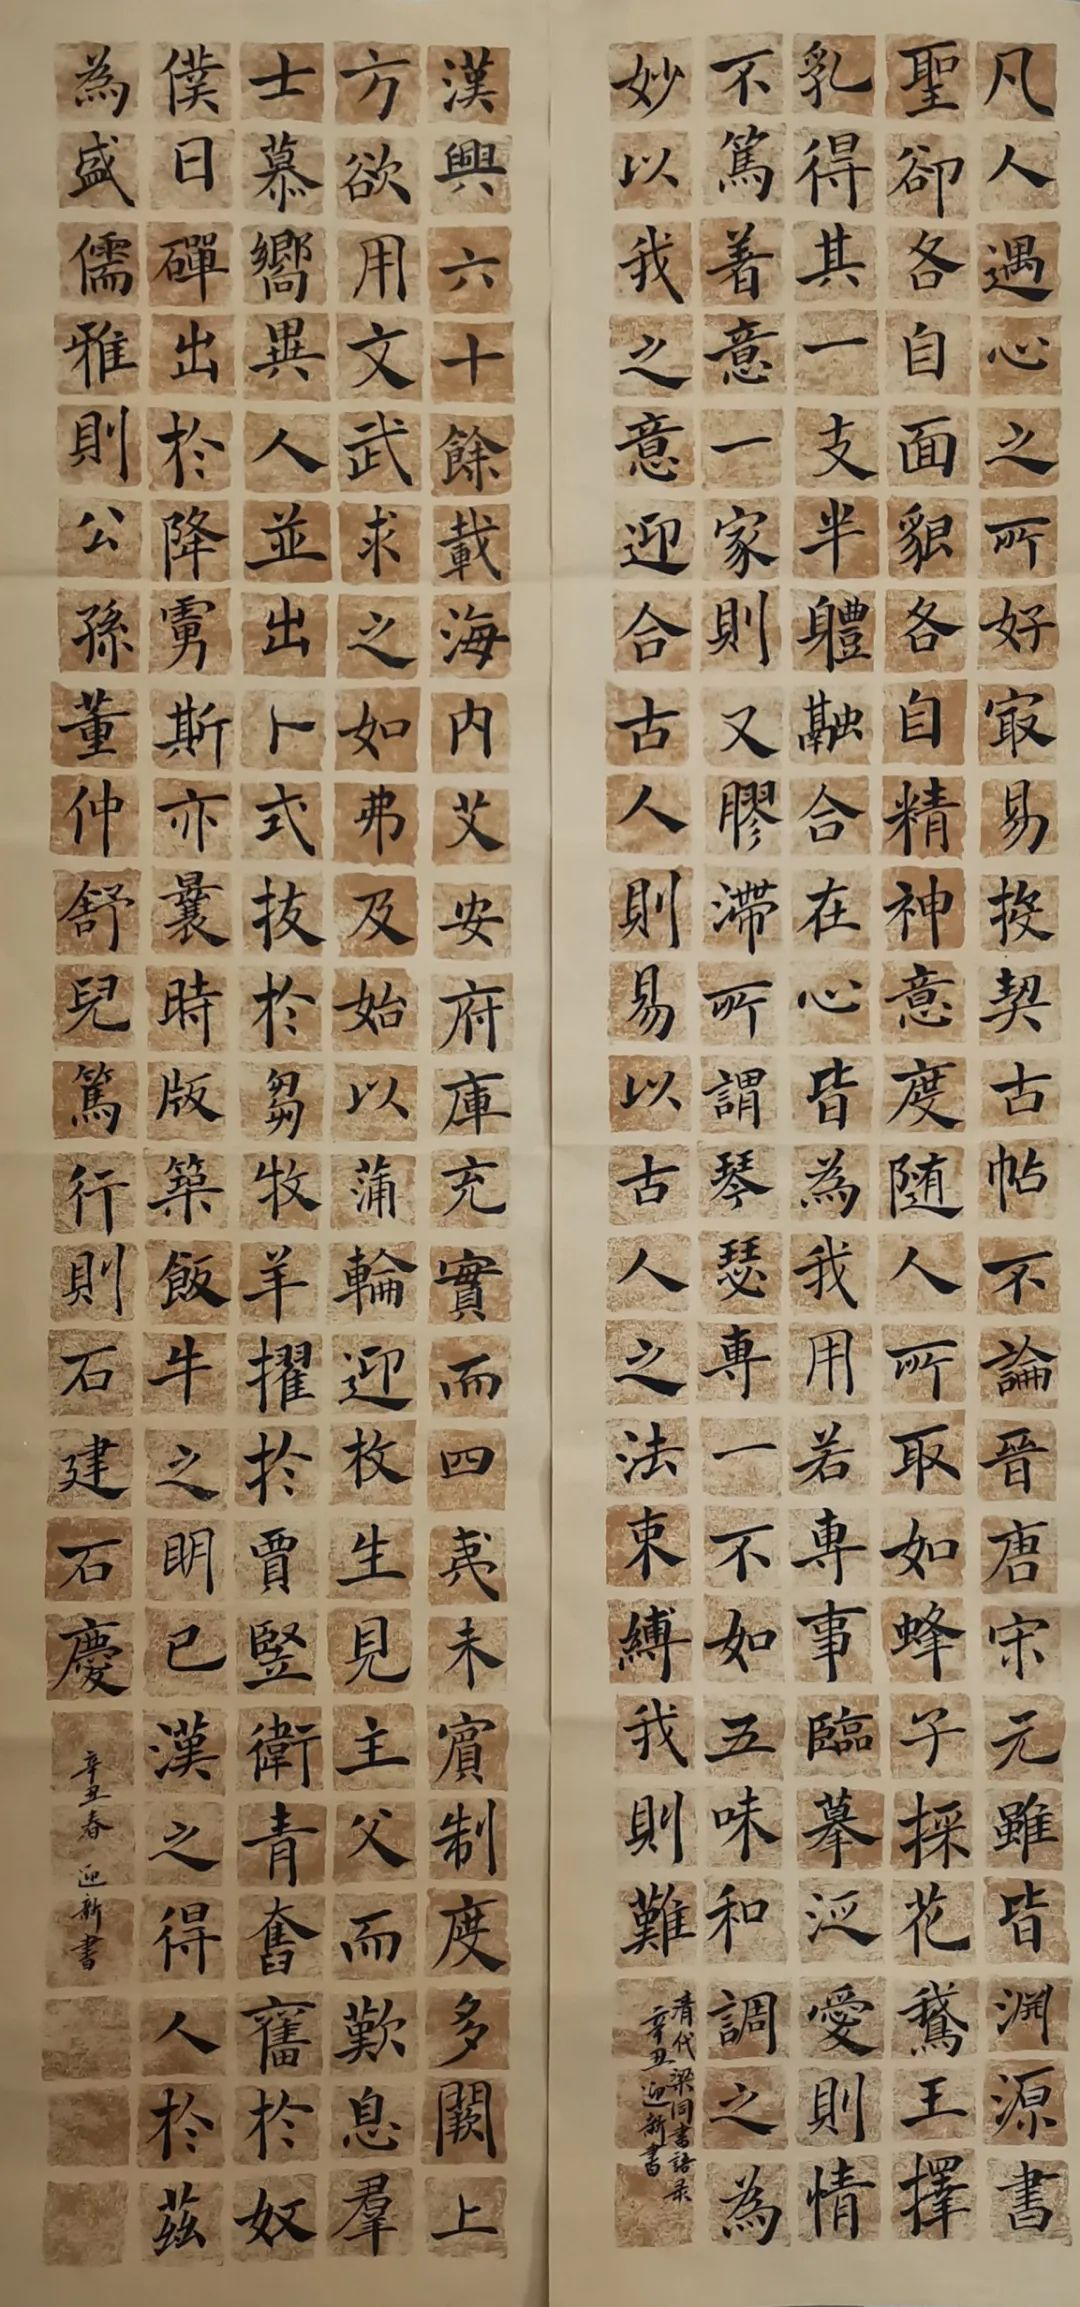 凡人遇心之所好寂易投契古帖不論晉唐宋元雖皆淵源書
聖卻各自面貌各自精神意度随人所取如蜂子採花鵞王擇
乳得其一支半體融合在心皆為我用若専事臨摹泛愛則情
不篤着意一家則又膠滯所謂琴瑟専一不如五味和調之為
妙以我之意迎合古人則易以古人之法束縛我則難
清代梁同書語录
辛丑迎新書
漢興六十餘載海内艾安府庫充實而四夷未賓制度多闕上
方欲用文武求之如弗及始以蒲輪迎枚生見主父而歎息羣
士慕嚮異人並出卜式拔於芻牧羊擢於賈竪衛青奮舊於奴
僕日磾出於降虜斯亦曩時版築飯牛之明已漢之得人於茲
為盛儒雅則公孫董仲舒兒篤行則石建石慶
辛丑春迎新書